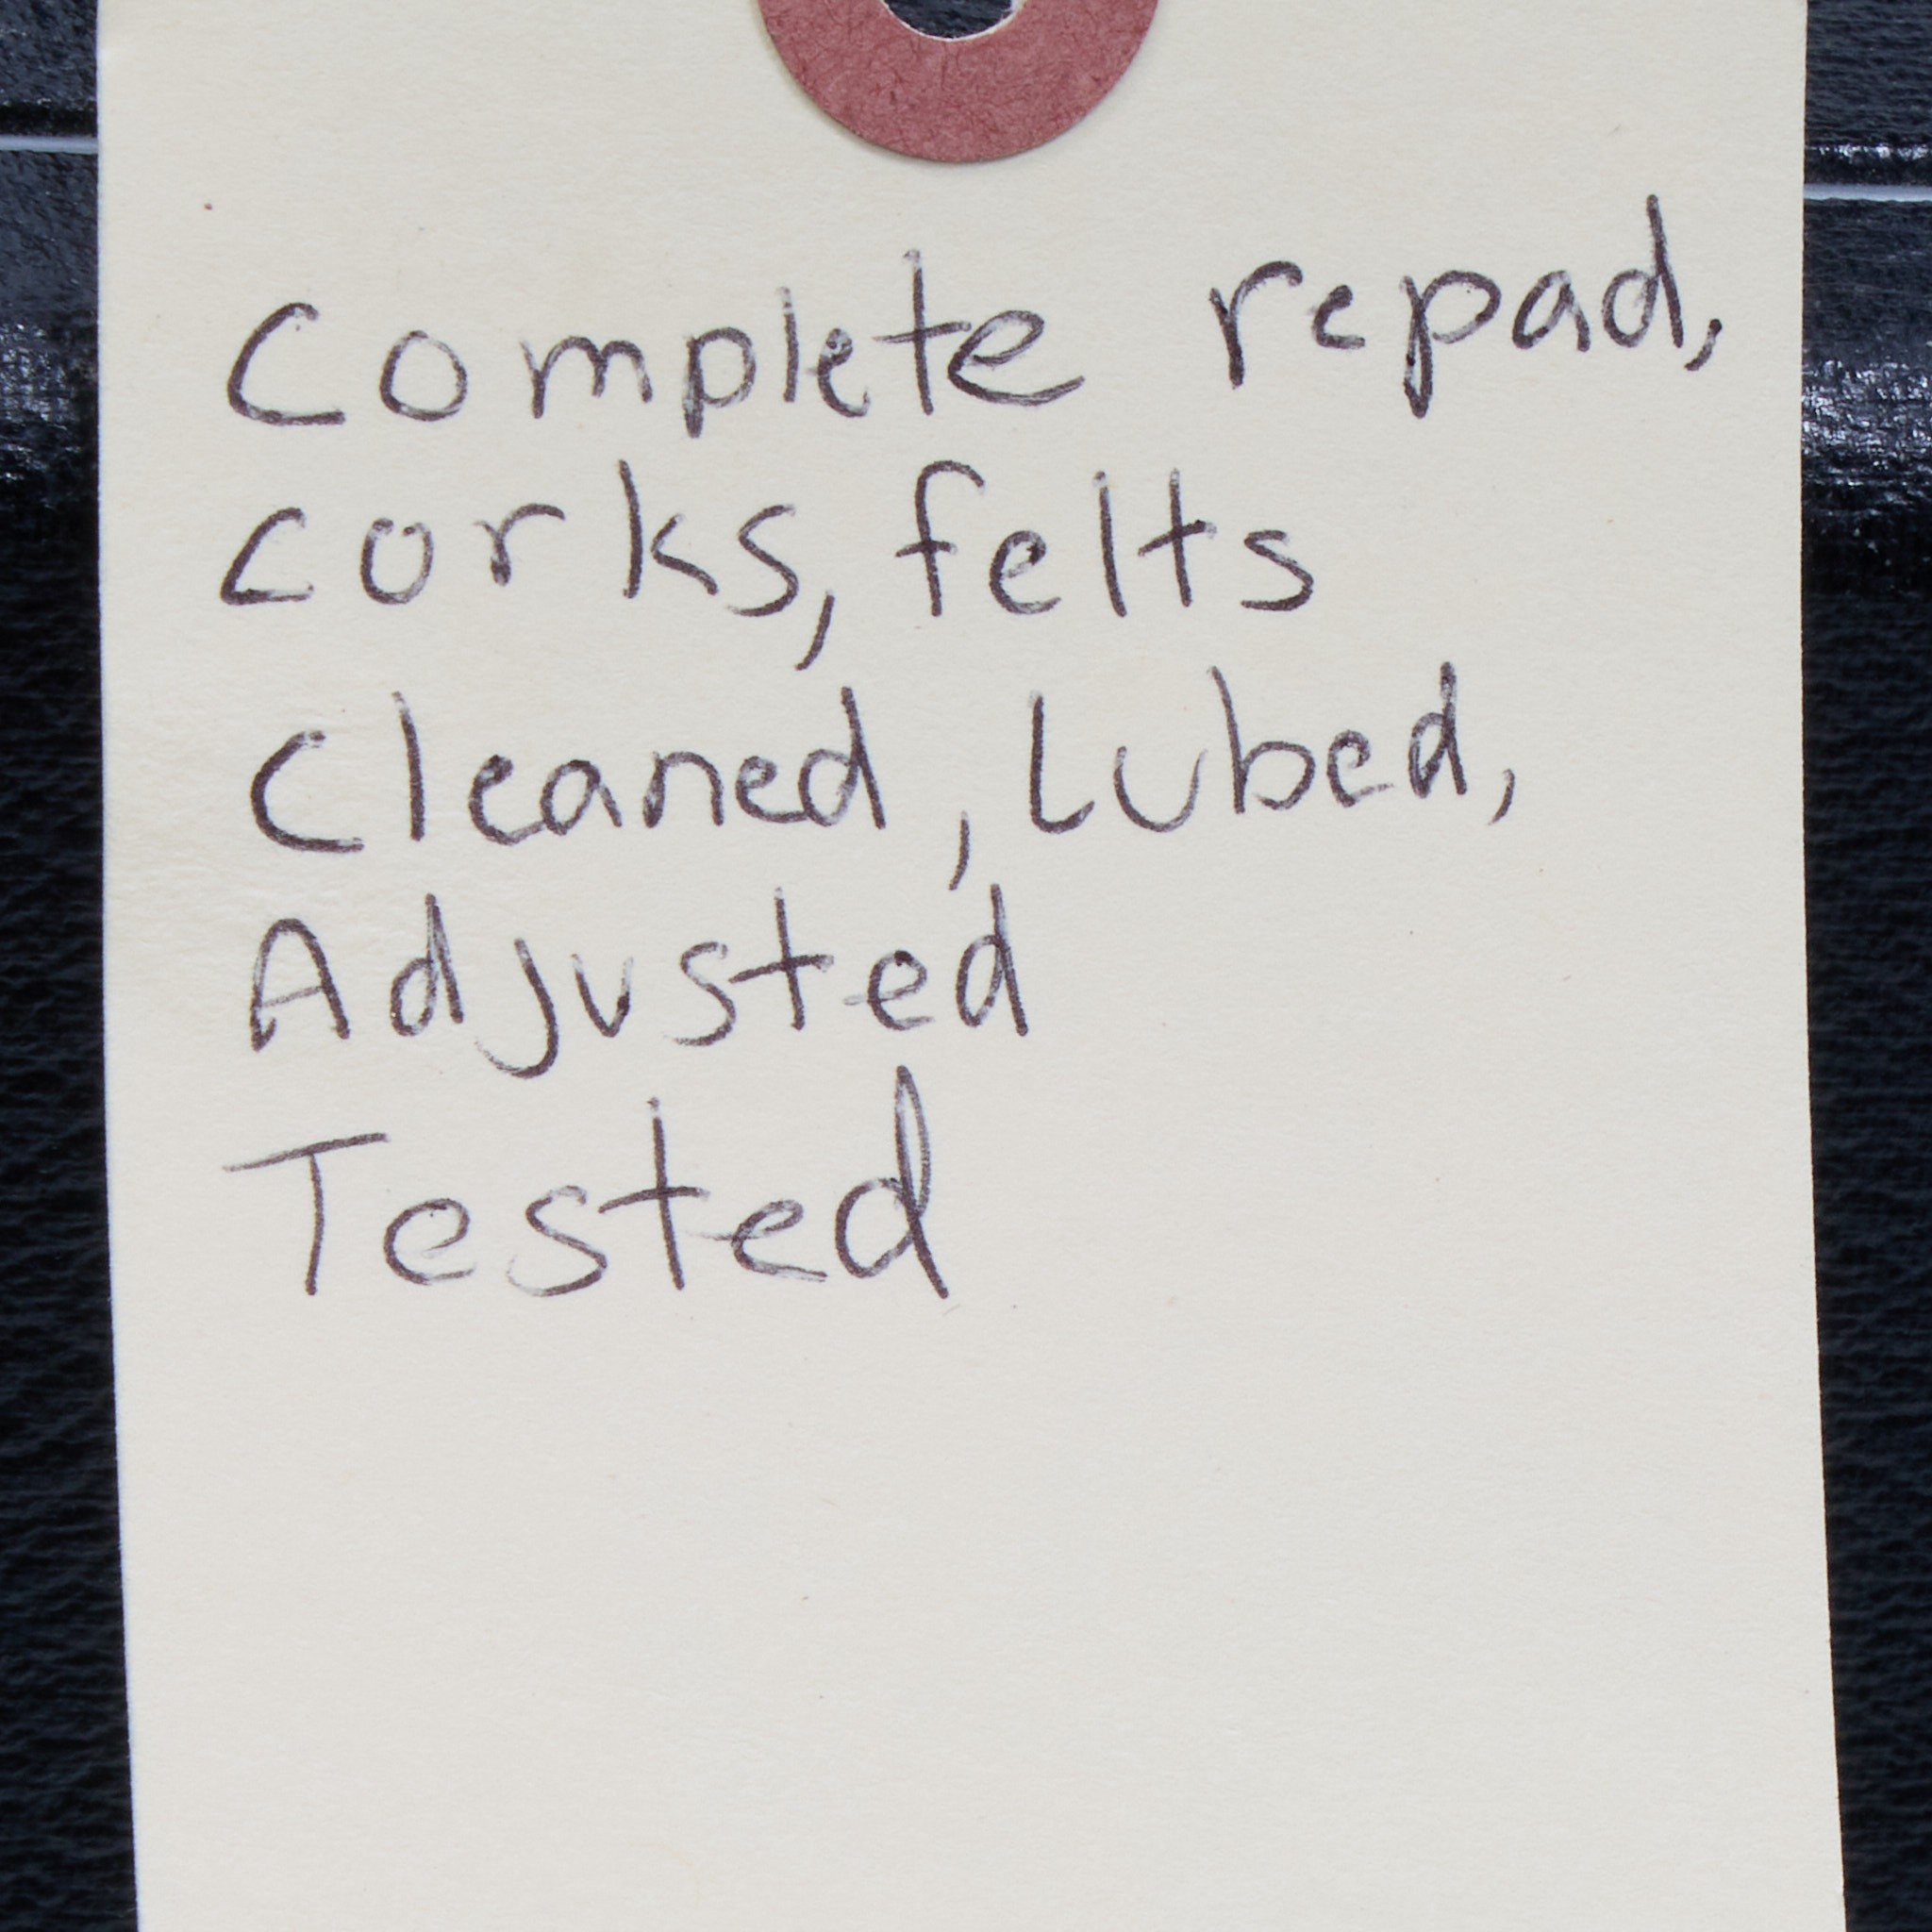 Complete repad,
corks, felts
Cleaned, Lubed,
Adjusted
Tested